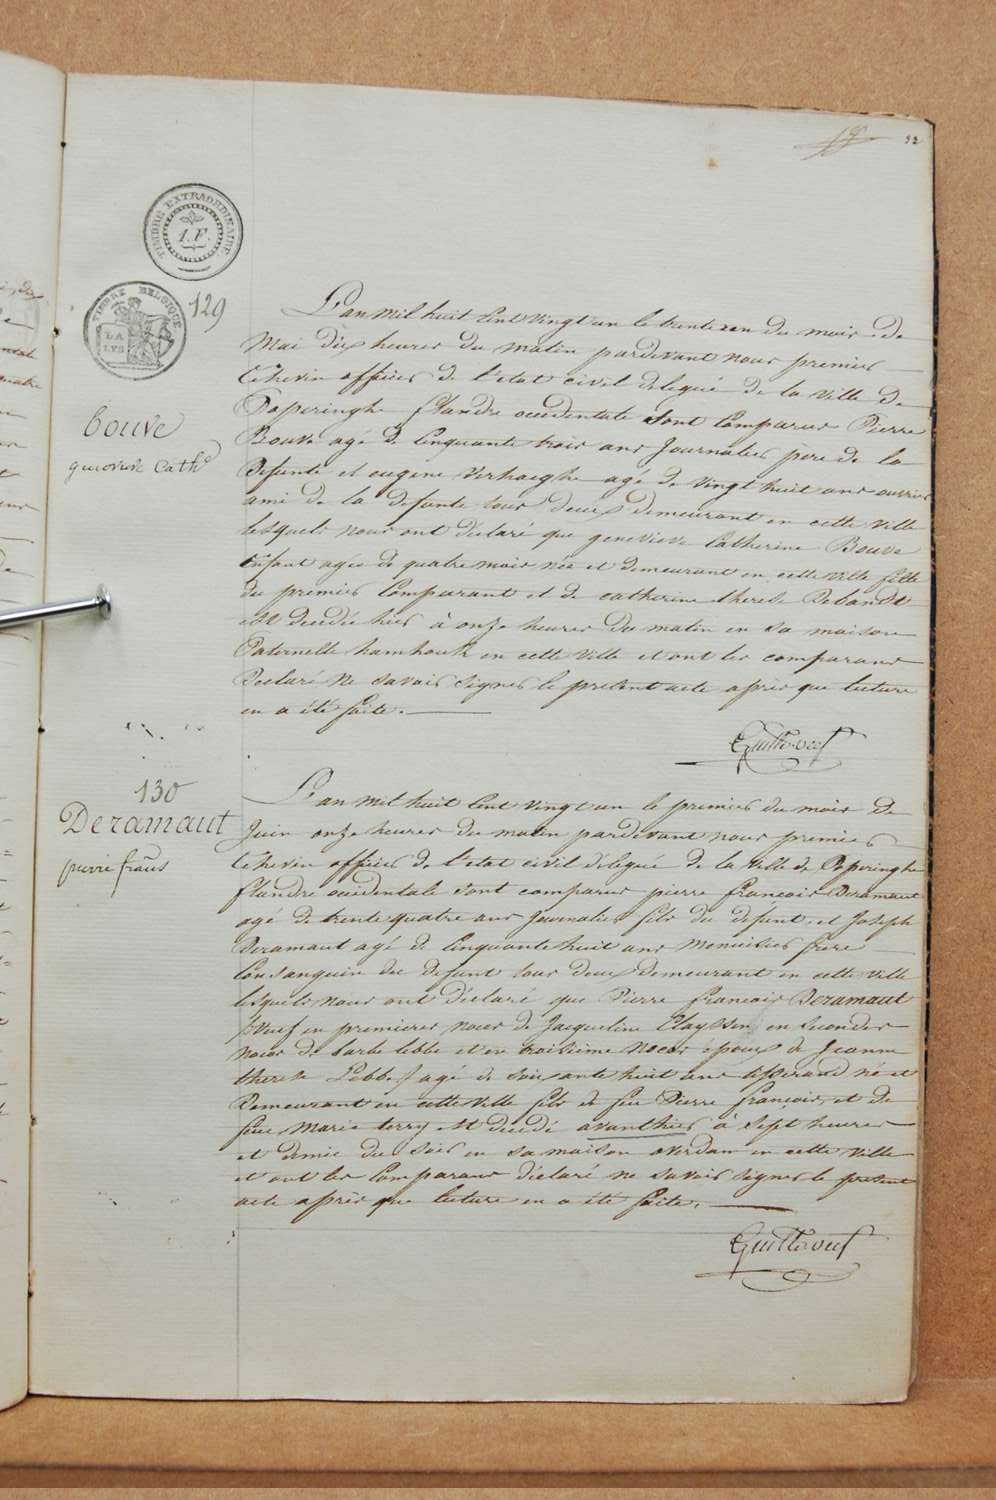 33
TIMBRE EXTRAORDINAIRE
1.F.
TIMBRE BELGIQUE
LA
LYS
129
L'an mil huit cent vingt un le trente un du mois de
Mai dix heures du matin pardevant nous premier
Echevin officier de l'etat civil delegué de la ville de
Poperinghe flandre occidentale sont comparus Pierre
Bouve agé de Cinquante trois ans Journalier pere de la
Defunte et eugene Verhaeghe agé de vingt huit ans ouvrier
ami de la defunte tous deux demeurant en cette ville
lesquels nous ont déclaré que genevieve Catherine Bouve
Enfant agée de quatre mois née et demeurant en cette ville fille
du premier Comparant et de catherine therese Debandt
est decedée hier à onze heures du matin en sa maison
Paternelle hamhouck en cette ville et ont les comparans
Declaré ne savoir signer le present acte après que lecture
en a été faite.
bouve
genevieve Cathe
130
Deramaut
pierre frans
L'an mil huit cent vingt un le premier du mois de
Juin onze heures du matin pardevant nous premier
Echevin officier de l'etat civil délegué de la ville de Poperinghe
flandre occidentale sont comparus pierre françois Deramaut
agé de trente quatre ans Journalier fils du defunt, et Joseph
Deramaut agé de Cinquante huit ans Menuisier frere
Consanguin du defunt tous deux demeurant en cette ville
lesquels nous ont déclaré que Pierre françois Deramaut
Veuf en premieres noces de Jacqueline Clayssen, en secondes
noces de barbe lebbe et en troisième noces epoux de Jeanne
therese Lebbe, agé de soixante huit ans tisserand né et
Demeurant en cette ville fils de feu Pierre françois, et de
feue Marie terry est decedé avanthier à sept heures
et demie du soir en sa maison overdam en cette ville
et ont les Comparans déclaré ne savoir signer le present
acte après que lecture en a été faite.